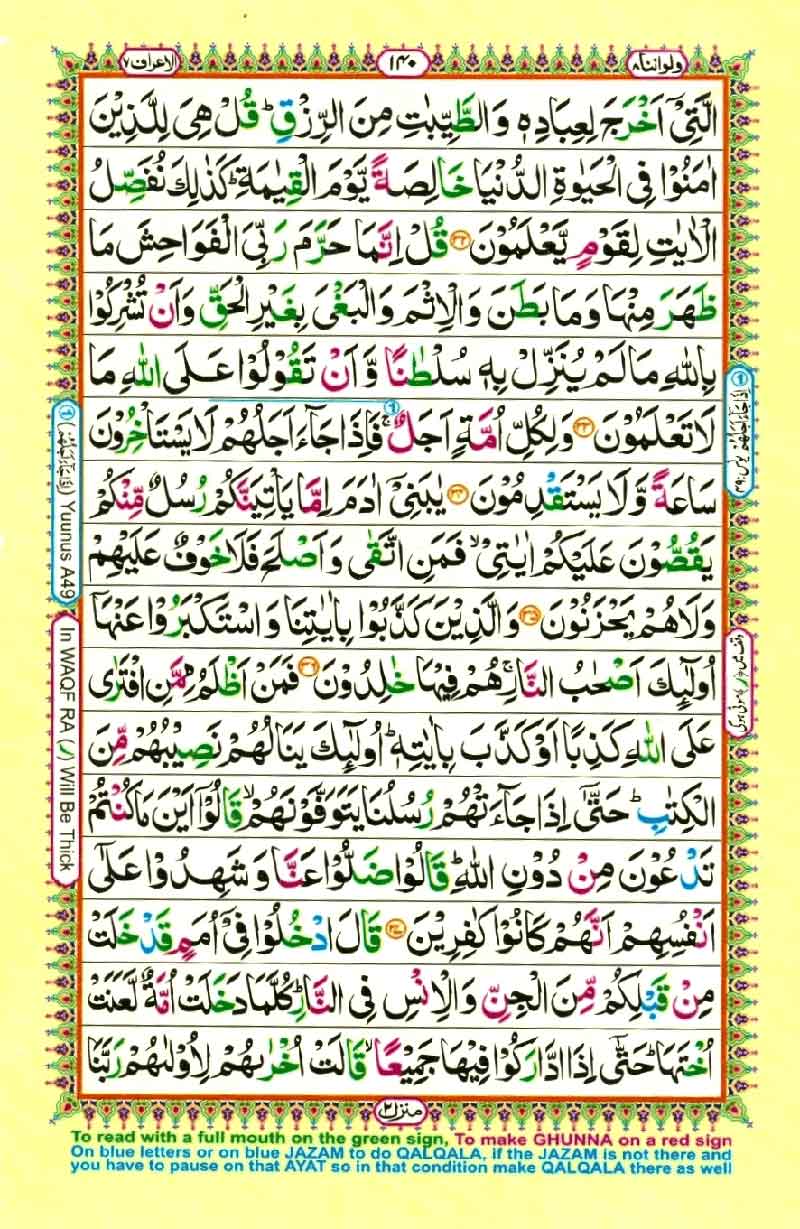 ولواننا ۸
۱۴۰
الاعراف ۷
الَّتِیْۤ اَخْرَجَ لِعِبَادِهٖ وَالطَّیِّبٰتِ مِنَ الرِّزْقِ ؕ قُلْ هِیَ لِلَّذِیْنَ
اٰمَنُوْا فِی الْحَیٰوةِ الدُّنْیَا خَالِصَةً یَّوْمَ الْقِیٰمَةِ ؕ كَذٰلِكَ نُفَصِّلُ
الْاٰیٰتِ لِقَوْمٍ یَّعْلَمُوْنَ ﴿۳۲﴾ قُلْ اِنَّمَا حَرَّمَ رَبِّیَ الْفَوَاحِشَ مَا
ظَهَرَ مِنْهَا وَمَا بَطَنَ وَالْاِثْمَ وَالْبَغْیَ بِغَیْرِ الْحَقِّ وَاَنْ تُشْرِكُوْا
بِاللّٰهِ مَا لَمْ یُنَزِّلْ بِهٖ سُلْطٰنًا وَّاَنْ تَقُوْلُوْا عَلَی اللّٰهِ مَا
لَا تَعْلَمُوْنَ ﴿۳۳﴾ وَلِكُلِّ اُمَّةٍ اَجَلٌ ۚ فَاِذَا جَآءَ اَجَلُهُمْ لَا یَسْتَاْخِرُوْنَ
سَاعَةً وَّلَا یَسْتَقْدِمُوْنَ ﴿۳۴﴾ یٰبَنِیْۤ اٰدَمَ اِمَّا یَاْتِیَنَّكُمْ رُسُلٌ مِّنْكُمْ
یَقُصُّوْنَ عَلَیْكُمْ اٰیٰتِیْ ۙ فَمَنِ اتَّقٰی وَاَصْلَحَ فَلَا خَوْفٌ عَلَیْهِمْ
وَلَا هُمْ یَحْزَنُوْنَ ﴿۳۵﴾ وَالَّذِیْنَ كَذَّبُوْا بِاٰیٰتِنَا وَاسْتَكْبَرُوْا عَنْهَاۤ
اُولٰٓئِكَ اَصْحٰبُ النَّارِ ۚ هُمْ فِیْهَا خٰلِدُوْنَ ﴿۳۶﴾ فَمَنْ اَظْلَمُ مِمَّنِ افْتَرٰی
عَلَی اللّٰهِ كَذِبًا اَوْ كَذَّبَ بِاٰیٰتِهٖ ؕ اُولٰٓئِكَ یَنَالُهُمْ نَصِیْبُهُمْ مِّنَ
الْكِتٰبِ ؕ حَتّٰۤی اِذَا جَآءَتْهُمْ رُسُلُنَا یَتَوَفَّوْنَهُمْ ۙ قَالُوْۤا اَیْنَ مَا كُنْتُمْ
تَدْعُوْنَ مِنْ دُوْنِ اللّٰهِ ؕ قَالُوْا ضَلُّوْا عَنَّا وَشَهِدُوْا عَلٰۤی
اَنْفُسِهِمْ اَنَّهُمْ كَانُوْا كٰفِرِیْنَ ﴿۳۷﴾ قَالَ ادْخُلُوْا فِیْۤ اُمَمٍ قَدْ خَلَتْ
مِنْ قَبْلِكُمْ مِّنَ الْجِنِّ وَالْاِنْسِ فِی النَّارِ ؕ كُلَّمَا دَخَلَتْ اُمَّةٌ لَّعَنَتْ
اُخْتَهَا ؕ حَتّٰۤی اِذَا ادَّارَكُوْا فِیْهَا جَمِیْعًا ۙ قَالَتْ اُخْرٰىهُمْ لِاُوْلٰىهُمْ رَبَّنَا
(اِذَا جَآءَ اَجَلُهُمْ) Yuunus A49
In WAQF RA (ر) Will Be Thick
اِذَا جَآءَ اَجَلُهُمْ یونس ۴۹
منزل ۲
To read with a full mouth on the green sign, To make GHUNNA on a red sign
On blue letters or on blue JAZAM to do QALQALA, if the JAZAM is not there and
you have to pause on that AYAT so in that condition make QALQALA there as well